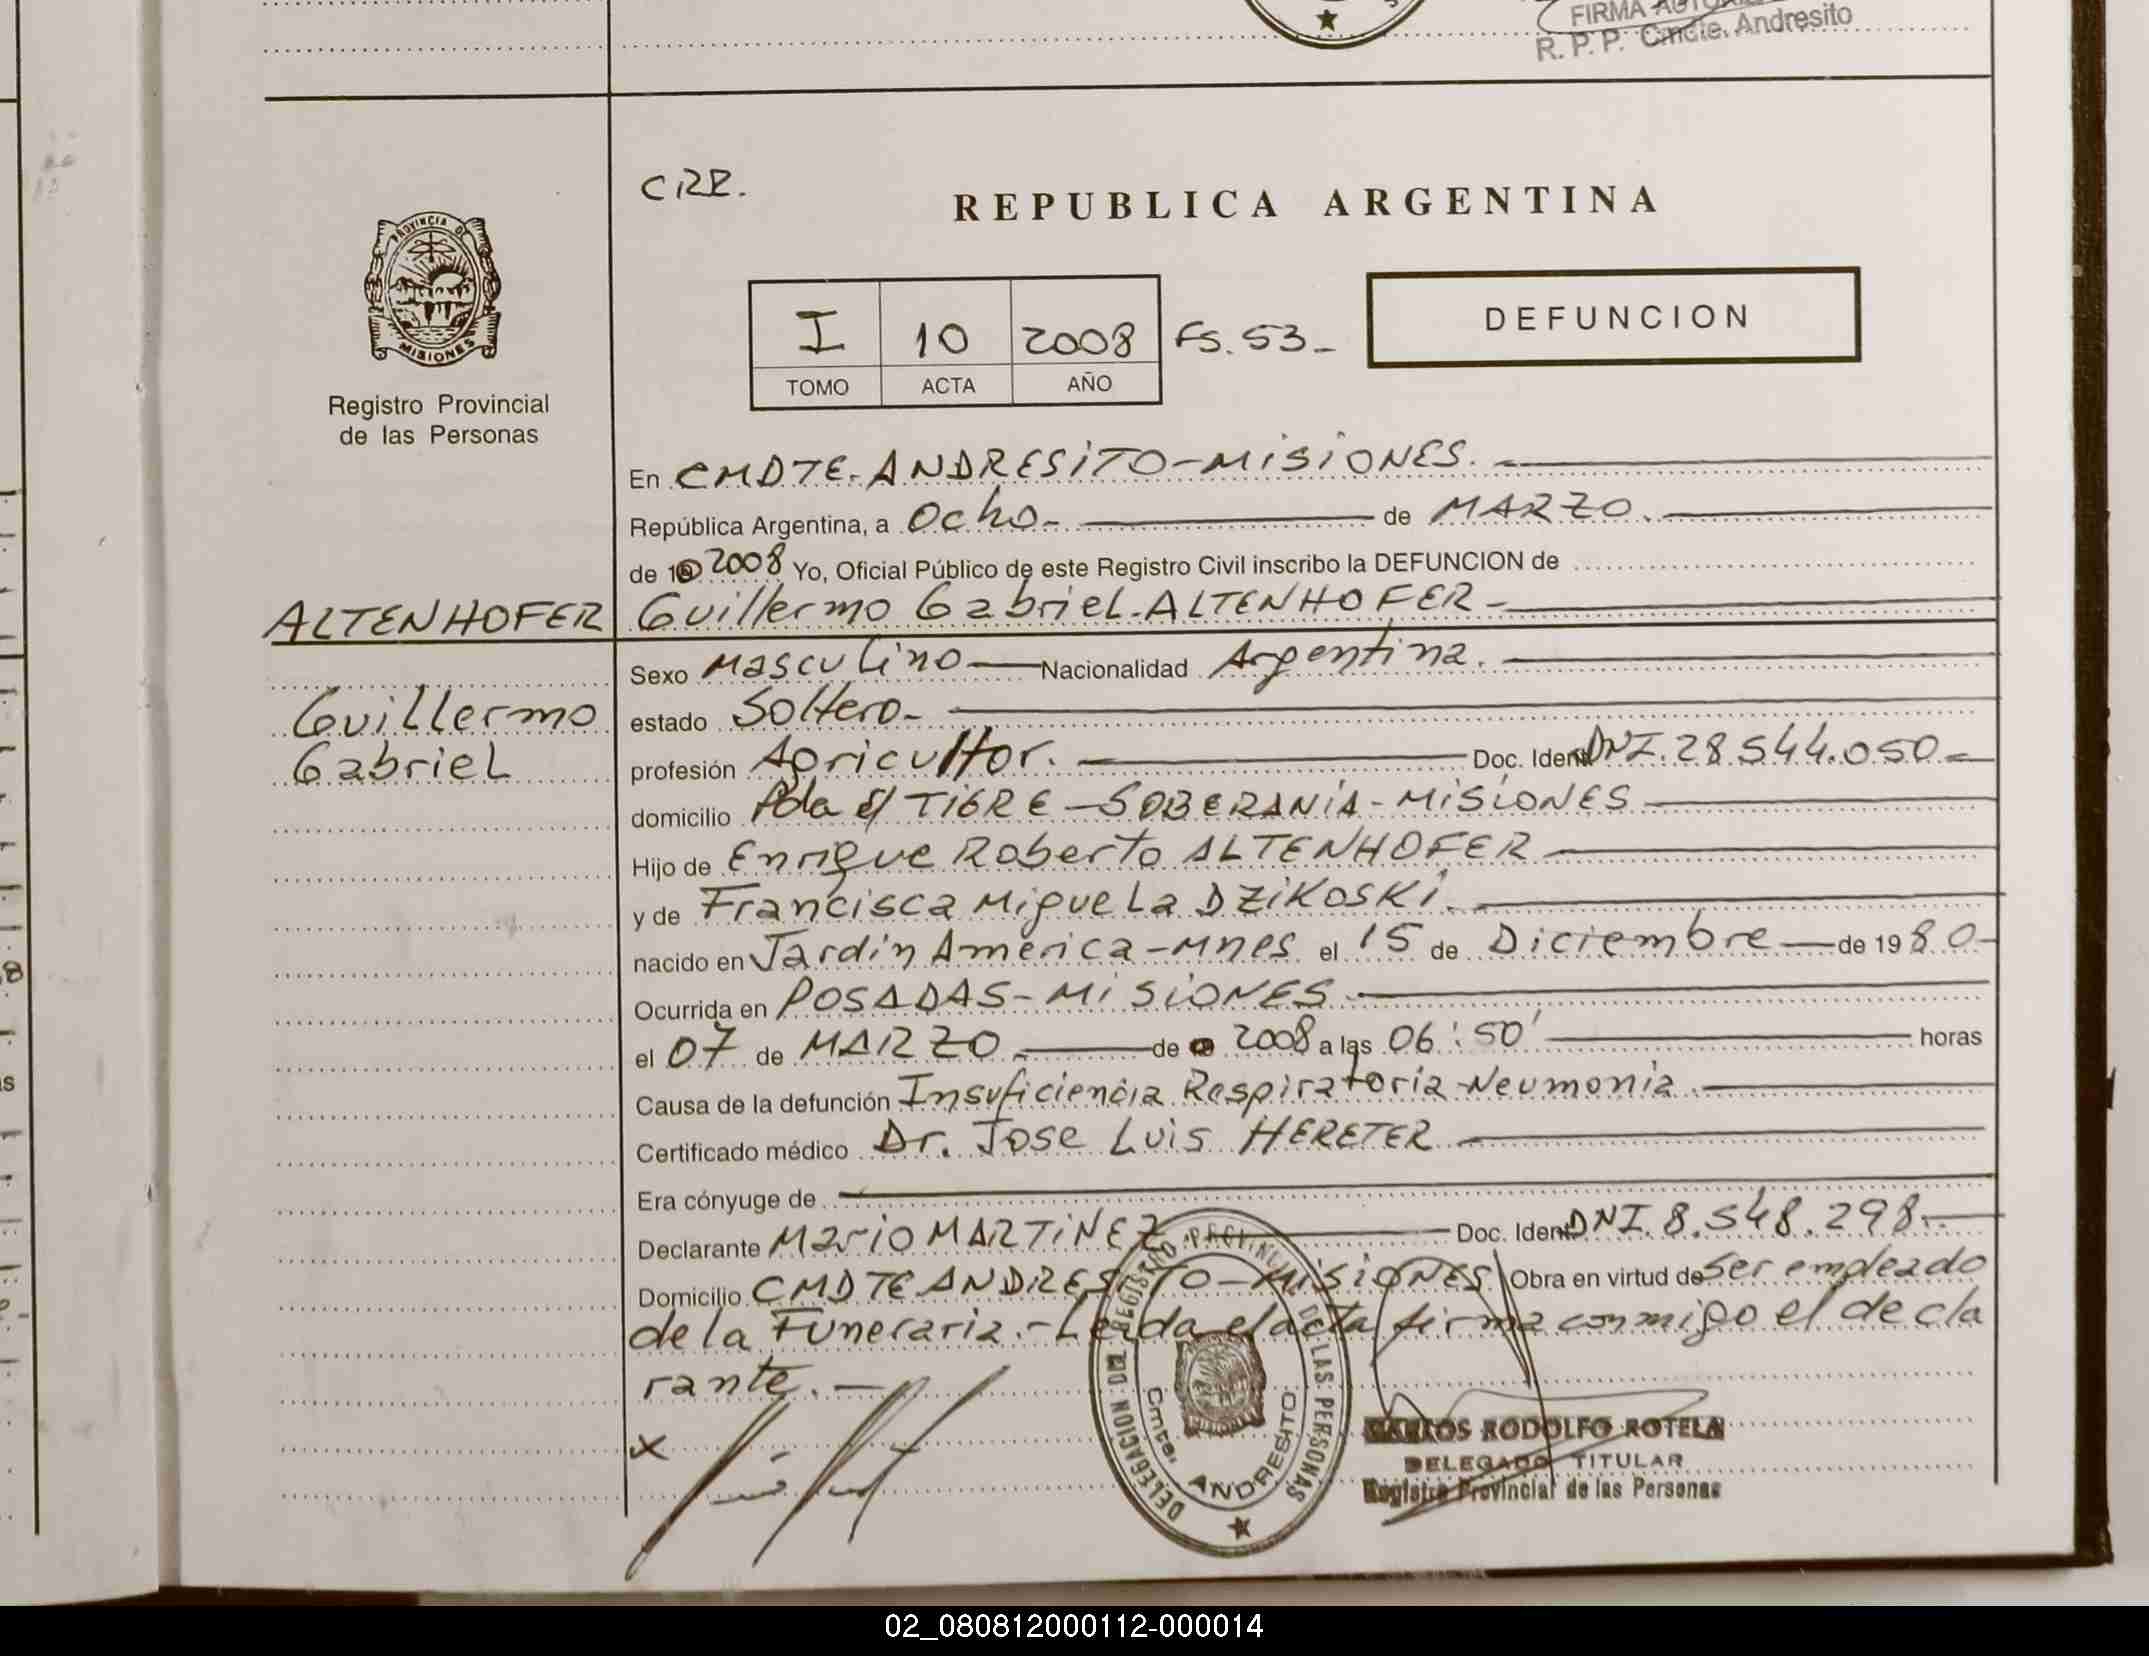 FIRMA
R. P. P. Cmdte. Andresito
PROVINCIA DE
MISIONES
Registro Provincial
de las Personas
CRR.
REPUBLICA ARGENTINA
I 10 2008 Fs. 53_
TOMO ACTA AÑO
DEFUNCION
En CMDTE-ANDRESITO-MISIONES.
República Argentina, a Ocho- de MARZO.
de 2008 Yo, Oficial Público de este Registro Civil inscribo la DEFUNCION de
ALTENHOFER Guillermo Gabriel-ALTENHOFER-
Sexo Masculino Nacionalidad Argentina.
Guillermo estado Soltero-
Gabriel profesión Agricultor. Doc. Ident DNI.28.544.050-
domicilio Pda El TIGRE-SOBERANIA-MISIONES
Hijo de Enrique Roberto ALTENHOFER
y de Francisca Miguela DZIKOSKI.
nacido en Jardin America-Mnes el 15 de Diciembre de 1980-
Ocurrida en POSADAS-MISIONES
el 07 de MARZO. de 2008 a las 06:50' horas
Causa de la defunción Insuficiencia Respiratoria-Neumonia.
Certificado médico Dr. Jose Luis HERETER
Era cónyuge de
Declarante Mario MARTINEZ Doc. Ident DNI.8.548.298.-
Domicilio CMDTE ANDRESITO-MISIONES Obra en virtud de Ser empleado
de la Funeraria.-Leida el acta firma conmigo el decla
rante.-
x
DELEGACION DEL REGISTRO PROVINCIAL DE LAS PERSONAS
Cmte. ANDRESITO
CARLOS RODOLFO ROTELA
DELEGADO TITULAR
Registro Provincial de las Personas
02_080812000112-000014